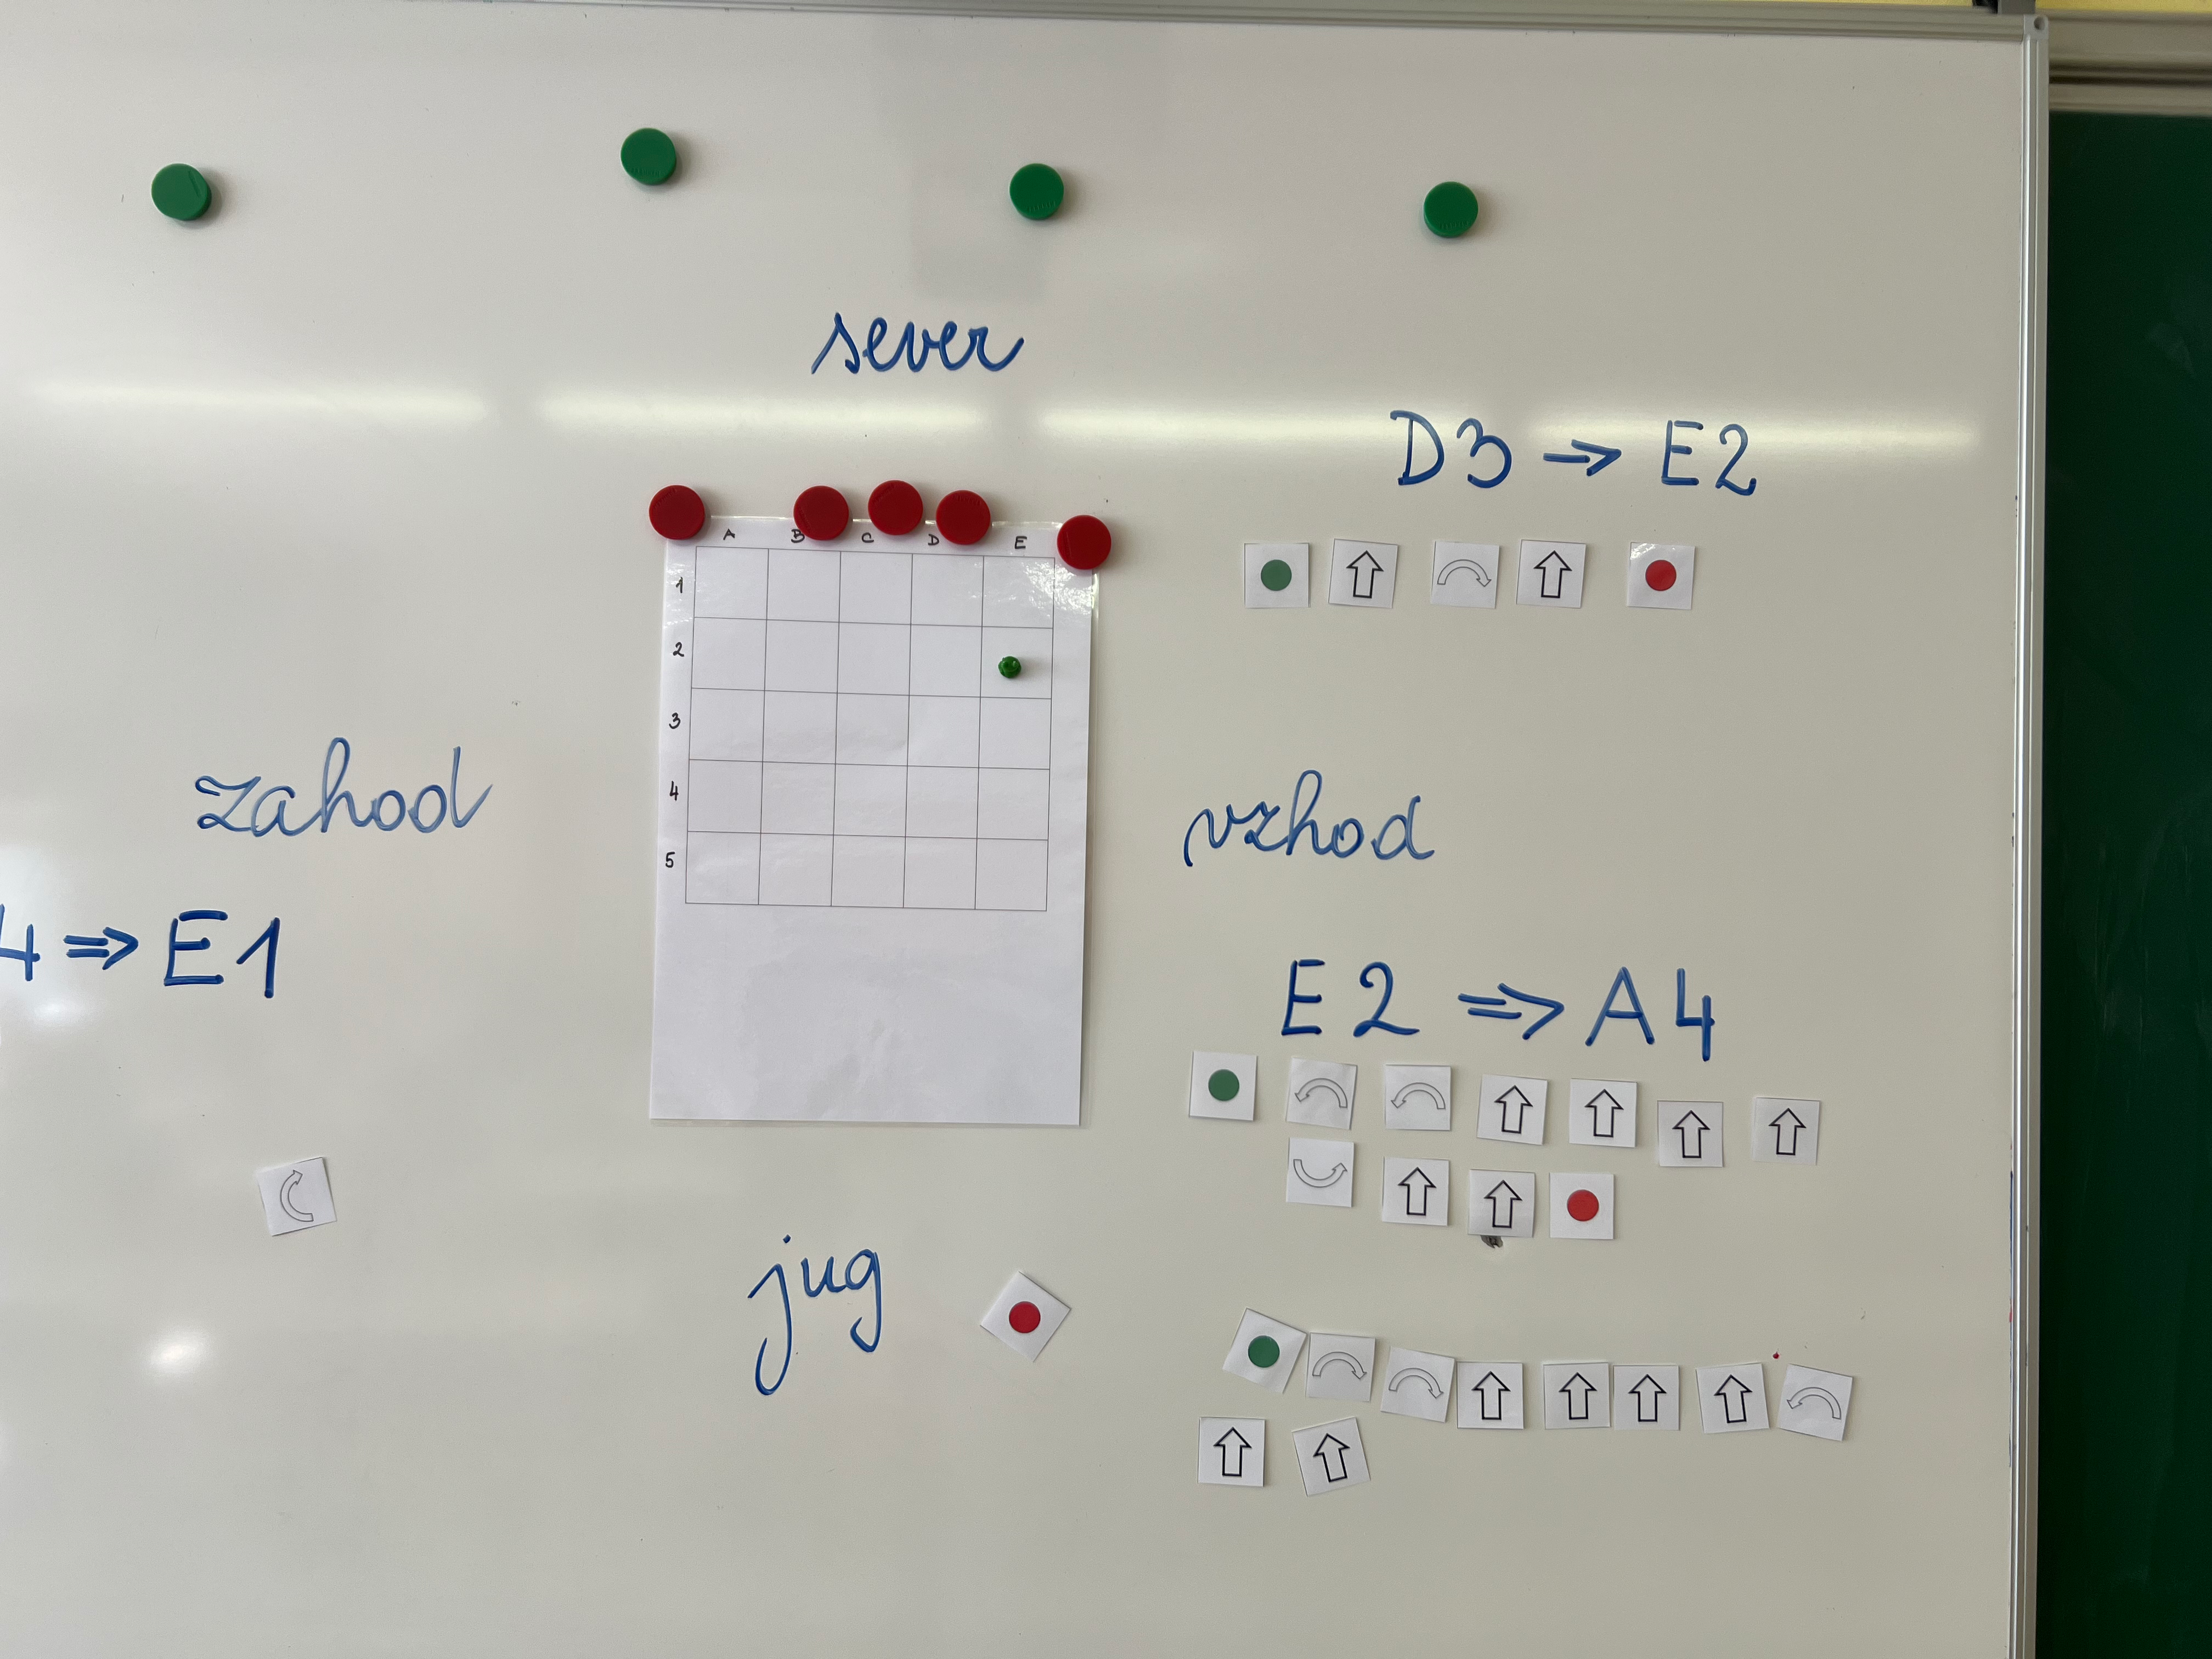 sever
D3 → E2
A B C D E
1
2
3
4
5
zahod
vzhod
4 ⇒ E1
E2 ⇒ A4
jug